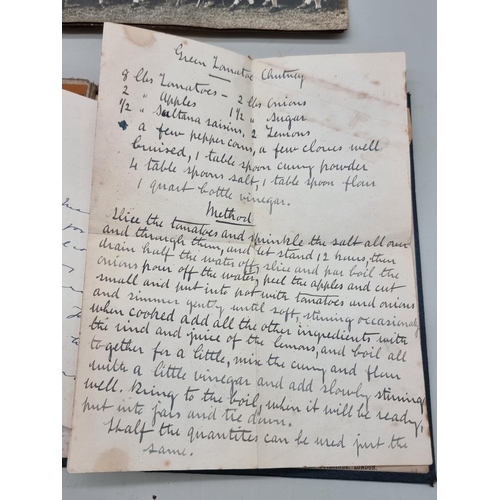 Green Tomatoe Chutney
8 lbs Tomatoes - 2 lbs onions
2 " Apples 1½ " Sugar
½ " Sultana raisins, 2 Lemons
a few peppercorns, a few cloves well
bruised, 1 table spoon curry powder
4 table spoons salt, 1 table spoon flour
1 quart bottle vinegar.
Method
Slice the tomatoes and sprinkle the salt all over
and through them, and let stand 12 hours, then
drain half the water off, slice and par boil the
onions pour off the water, peel the apples and cut
small and put into pot with tomatoes and onions
and simmer gently until soft, stirring occasionally
when cooked add all the other ingredients with
the rind and juice of the lemons, and boil all
together for a little, mix the curry and flour
with a little vinegar and add slowly stirring
well. Bring to the boil, when it will be ready,
put into jars and tie down.
Half the quantities can be used just the
same.
LONDON